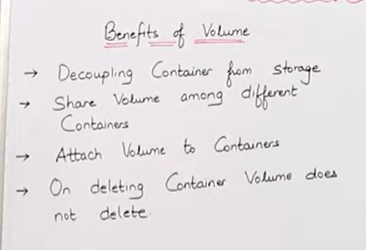 Benefits of Volume
→ Decoupling Container from storage
→ Share Volume among different
Containers
→ Attach Volume to Containers
→ On deleting Container Volume does
not delete.